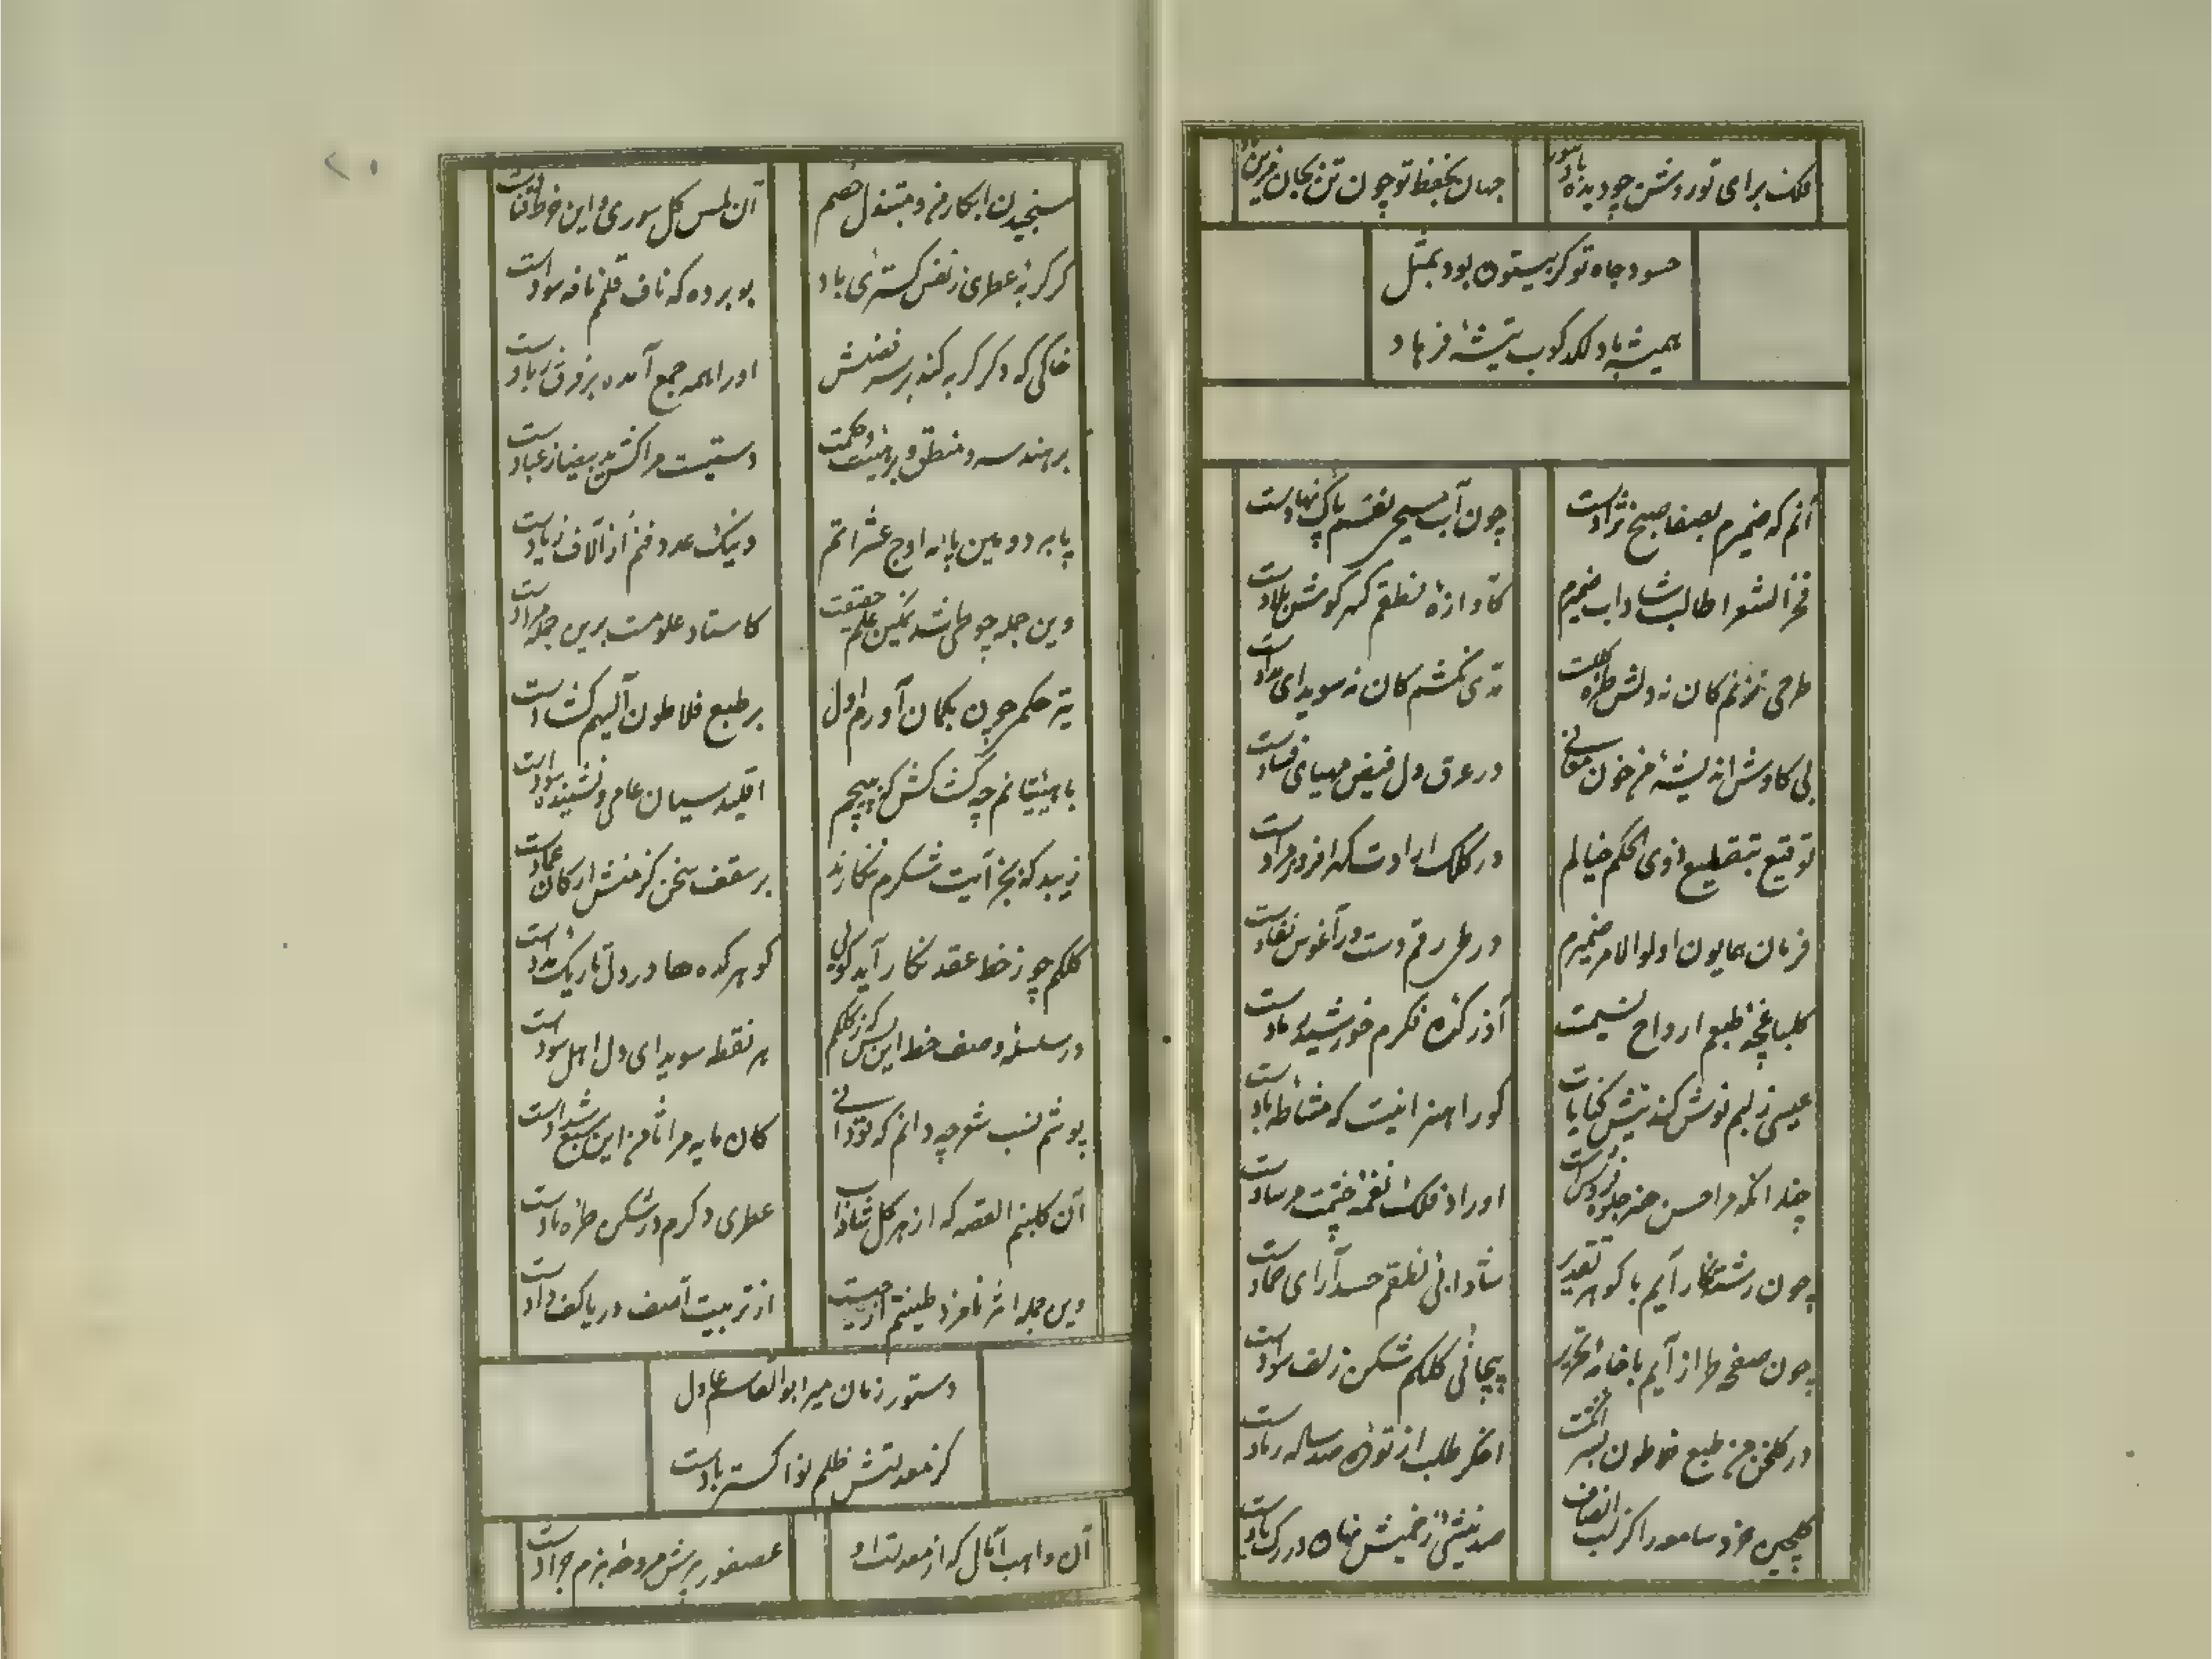 فلک برای تو روشن چو دیده باد بنور
جهان بحفظ تو چون تن بجان
حسود جاه تو گر بیستون بود بمثل
همیشه باد لکدکوب تیشهٔ فرهاد
آنم که ضمیرم بصفا صبح نژادست
چون آب مسیحی نفسم پاک نهادست
فخر الشعرا طالب شاداب ضمیرم
کاوازهٔ نطقم گهر گوش بلادست
طرحی نزنم کان نه دلش طرهٔ کلکست
مدی نکشم کان نه سویدای مدادست
بی کاوش اندیشهٔ من خون معانی
در عرق دل فیض مهیای فسادست
توقیع بتقطیع ذوی الحکم خیالم
در کلک ارادت که افراد مرادست
فرمان همایون اولوالامر ضمیرم
در طی رقم دست در آغوش نفادست
گلباغچهٔ طبعم ارواح نسیمست
آذرکدهٔ فکرم خورشید رمادست
عیسی ز لبم نوش کند نیش کنایات
کو را هنر اینست که مشاطه بادست
چندانکه مرا حسن هنر جلوه فروش است
اوراد فلک نغمهٔ چشمت مرسادست
چون رشته نگار آیم با گوهر تقدیر
شادابی نطقم حسد آرای جمادست
چون صفحه طراز آیم با خامهٔ تحریر
پیچانی کلکم شکن زلف سوادست
در گلخن من طبع فلاطون بسر انگشت
اخگر طلب از تودهٔ صد ساله رمادست
گلچین خرد سامعه را کز لب انصاف
صد نیشی از خمیش نهان در رگ یادست
سنجیدن ابکار من و مبتذل خصم
آن لمس گل سوری و این خرط قتادست
گر گریهٔ عطری ز نفس گستری باد
بو برده که ناف قلمم نافه سوادست
خاکی که دگر گریه کند بر سر فضلش
او را همه جمع آمده بر فرق زیادست
بر هندسه و منطق و بر هیئت و حکمت
دستیست مرا کش ید بیضا ز عبادست
پا بر دومین پایه اوج عشراتم
وینک عدد فنم از آلاف زیادست
وین جمله چو طی شد نمکین علم حقیقت
کاستاد علومست برین جمله مزادست
تیر حکم چون بکمان آورم اول
بر طبع فلاطون الهیم گشادست
با هیئتیانم چه کشاکش که نپیچم
اقلیدسیان عامی و نشنیده سوادست
زیبد که بجز آیت شکرم ننگارند
بر سقف سخن کز منش ارکان و عمادست
کلکم چو ز خط عقد نگار آید گویی
گوهرکده‌ها در دل تاریک مدادست
در سلسلهٔ وصف خط این بس که ز کلکم
هر نقطه سویدای دل اهل سوادست
پوشم نسب شعر چه دانم که تو دانی
کان پایه مرا ثامن این سبع شدادست
آن گلبنم القصه که از هر گل شاداب
عطری دگرم در شکن طرهٔ بادست
وین جمله اثر نامزد طینتم از چیست
از تربیت آصف دریا کف رادست
دستور زمان میر ابوالقاسم عادل
کز معدلتش ظلم نوا گستر دادست
آن واهب آمال که از معدلت او
عصفور پرش مروحه بزم جرادست